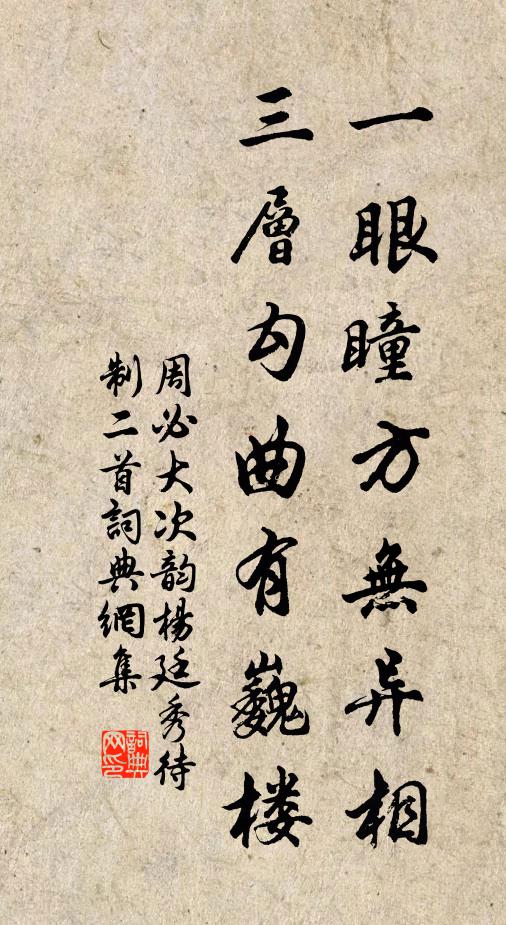 一眼瞳方無异相
三層勾曲有巍楼
周必大次韵楊廷秀待
制二首詞典網集
詞典网印